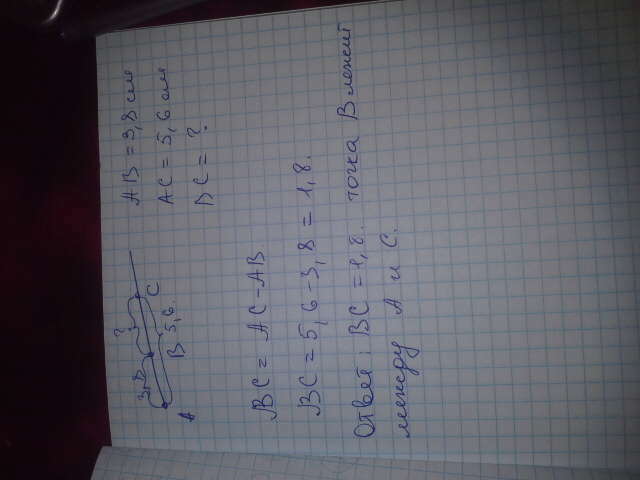 ?
3,8
A B C
5,6
AB = 3,8 см
AC = 5,6 см
BC = ?
BC = AC - AB
BC = 5,6 - 3,8 = 1,8.
Ответ: BC = 1,8. точка B лежит
между A и C.